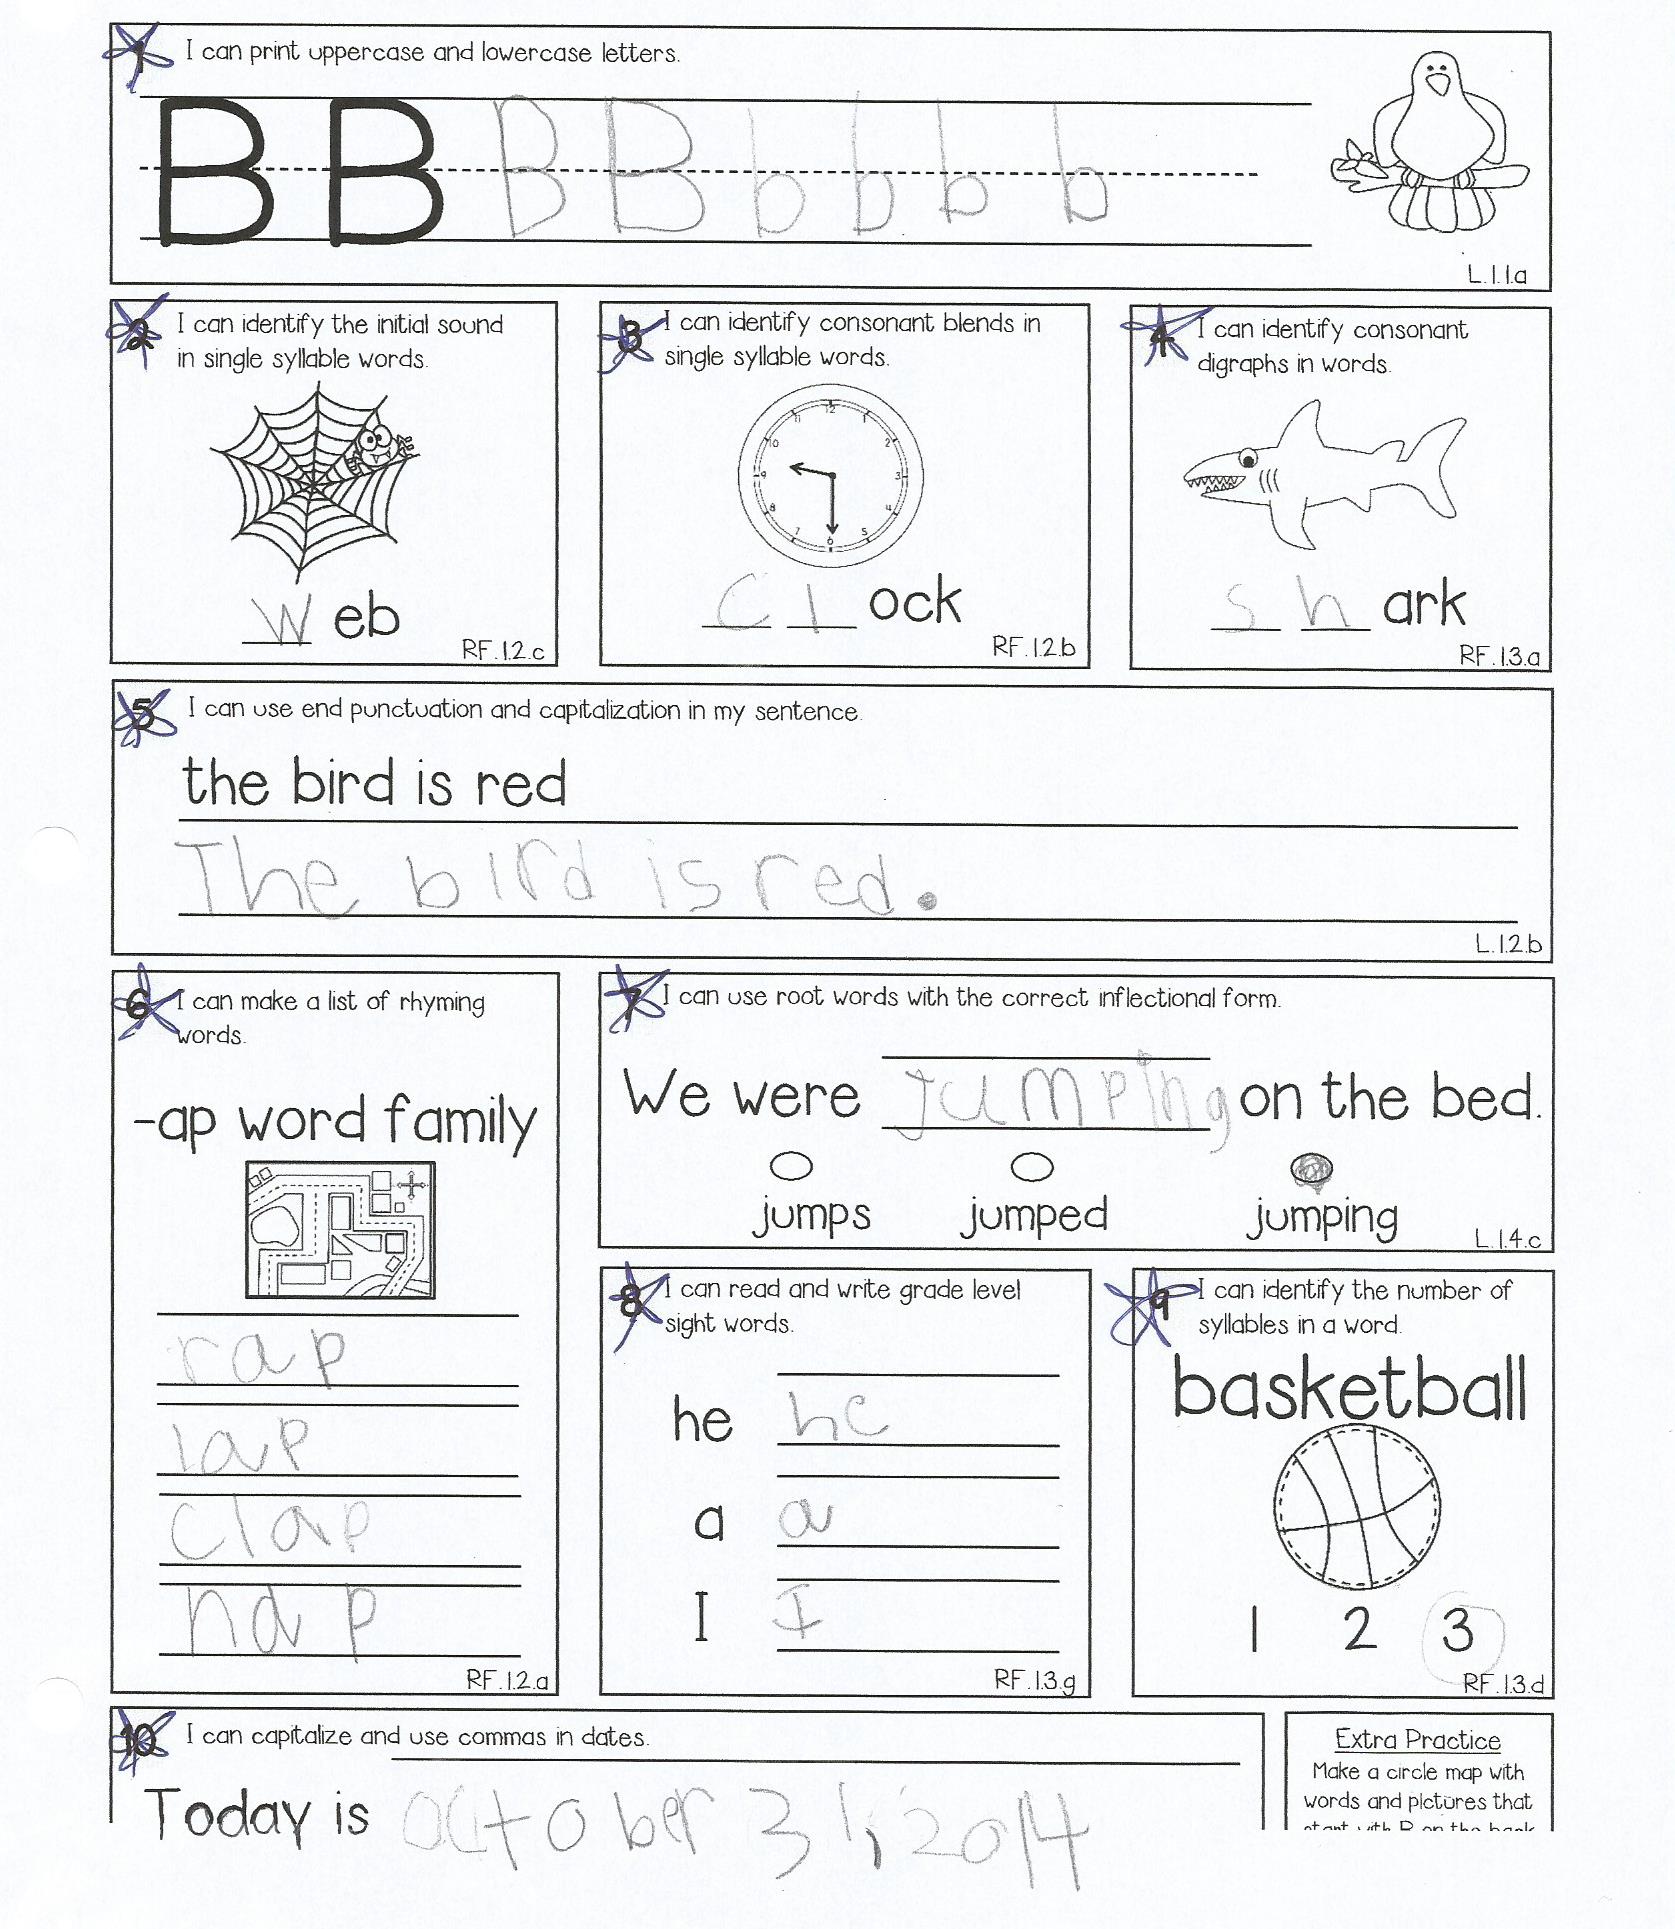 1 I can print uppercase and lowercase letters.
B B B B b b b b
L.1.1.a
2 I can identify the initial sound
in single syllable words.
w eb
RF.1.2.c
3 I can identify consonant blends in
single syllable words.
12 1 2 3 4 5 6 7 8 9 10 11
c l ock
RF.1.2.b
4 I can identify consonant
digraphs in words.
s h ark
RF.1.3.a
5 I can use end punctuation and capitalization in my sentence.
the bird is red
The bird is red.
L.1.2.b
6 I can make a list of rhyming
words.
-ap word family
rap
lap
clap
nap
RF.1.2.a
7 I can use root words with the correct inflectional form.
We were jumping on the bed.
jumps jumped jumping
L.1.4.c
8 I can read and write grade level
sight words.
he he
a a
I I
RF.1.3.g
9 I can identify the number of
syllables in a word.
basketball
1 2 3
RF.1.3.d
10 I can capitalize and use commas in dates.
Today is October 31, 2014
Extra Practice
Make a circle map with
words and pictures that
start with B on the back